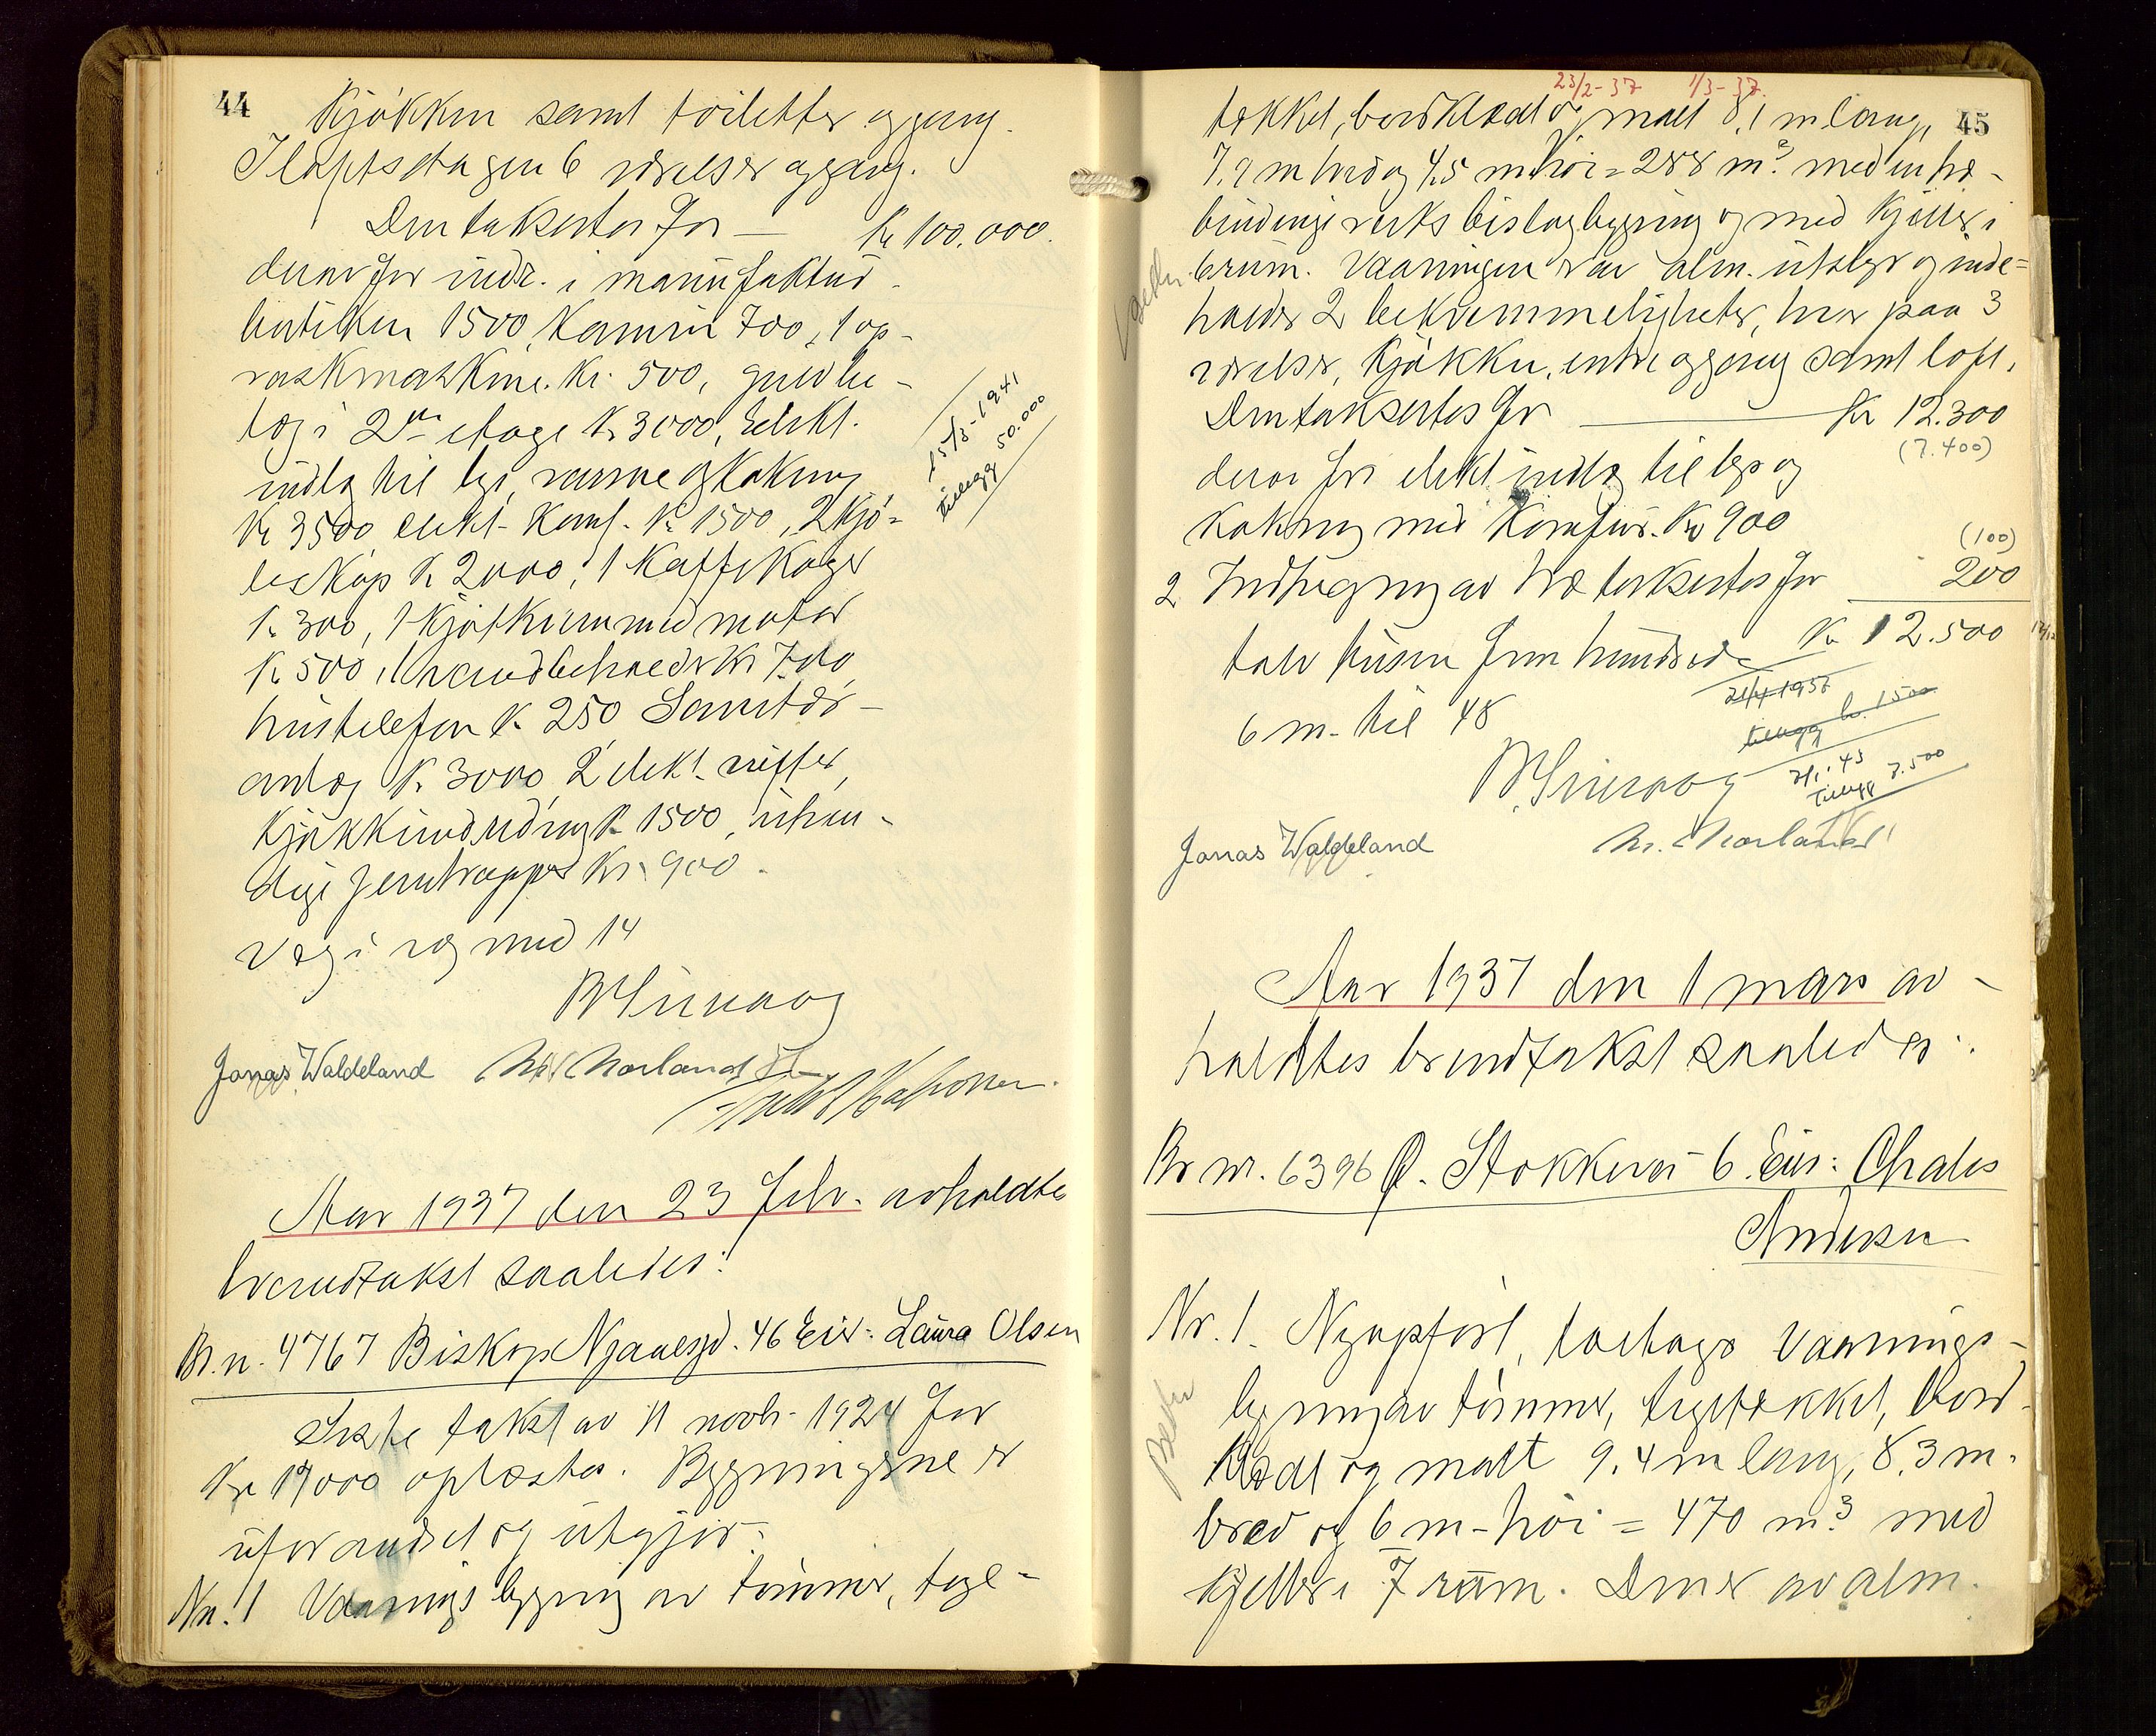 44
Kjøkken samt toiletter og gang.
I loftsetagen 6 værelser og gang.
Den takseres for — Kr 100.000.
derav for indr. i manufaktur-
butikken 1500, Kamin 700, 1 op-
vaskmaskine Kr. 500, gulvbe-
læg i 2den etage Kr 3000, Elekt.
indlæg til lys, varme og kokning
Kr 3500 elekt. Komf. Kr 1500, 2 kjø-
leskap Kr 2000, 1 kaffekoger
Kr 300, 1 kjøtkvern med motor
Kr 500, 1 vandbeholder Kr 700,
hustelefon Kr 250 Sanitær-
anlæg Kr 3000, 2 elekt. vifter,
kjøkkenindredning Kr 1500, utven-
dige jerntrapper Kr. 900.
15/3-1941
tillegg 50.000
Væg i væg med 14
Jonas Waldeland
Aar 1937 den 23 febr. avholdtes
brandtakst saaledes:
Br.n. 4767 Biskop Njaalsgd. 46 Eier: Laura Olsen
Siste takst av 11 novbr. 1924 for
Kr 17000 oplæstes. Bygningerne er
uforandret og utgjør:
Nr. 1 Vaaningsbygning av tømmer, tegl-
45
23/2-37 1/3-37.
tækket, bordklædt og malt 8,1 m lang,
7.9 m bred og 4,5 m høi = 288 m3 med en træ-
bindingsverks bislagbygning og med kjeller i
6 rum. Vaaningen er av alm. utstyr og inde-
holder 2 bekvemmeligheter, hver paa 3
værelser, kjøkken, entre og gang samt loft.
Den takseres for Kr 12.300
(7.400)
derav for elekt indlæg til lys og
kokning med Komfur. Kr 900
(100)
2 Indhegning av træ takseres for 200
Kr 12.500
tolv tusen fem hundrede
6 m. til 48
21/4 1937
tillegg kr. 1500
2/1-43
Tillegg 7.500
Jonas Waldeland
Aar 1937 den 1 mars av-
holdtes brandtakst saaledes:
Br nr. 6396 Ø. Stokkevei 6. Eier: Chales
Andersen
Nr. 1. Nyopført, toetages Vaanings-
bygning av tømmer, tegltækket, bord-
klædt og malt 9.4 m lang, 8.3 m.
bred og 6 m-høi = 470 m3 med
kjeller i 7 rum. Den er av alm.